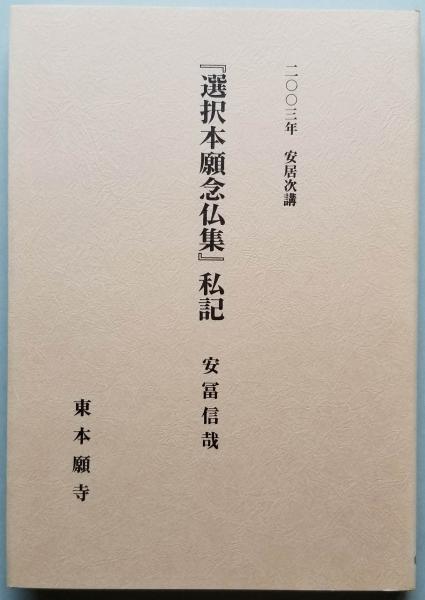 二〇〇三年 安居次講
『選択本願念仏集』私記
安冨信哉
東本願寺